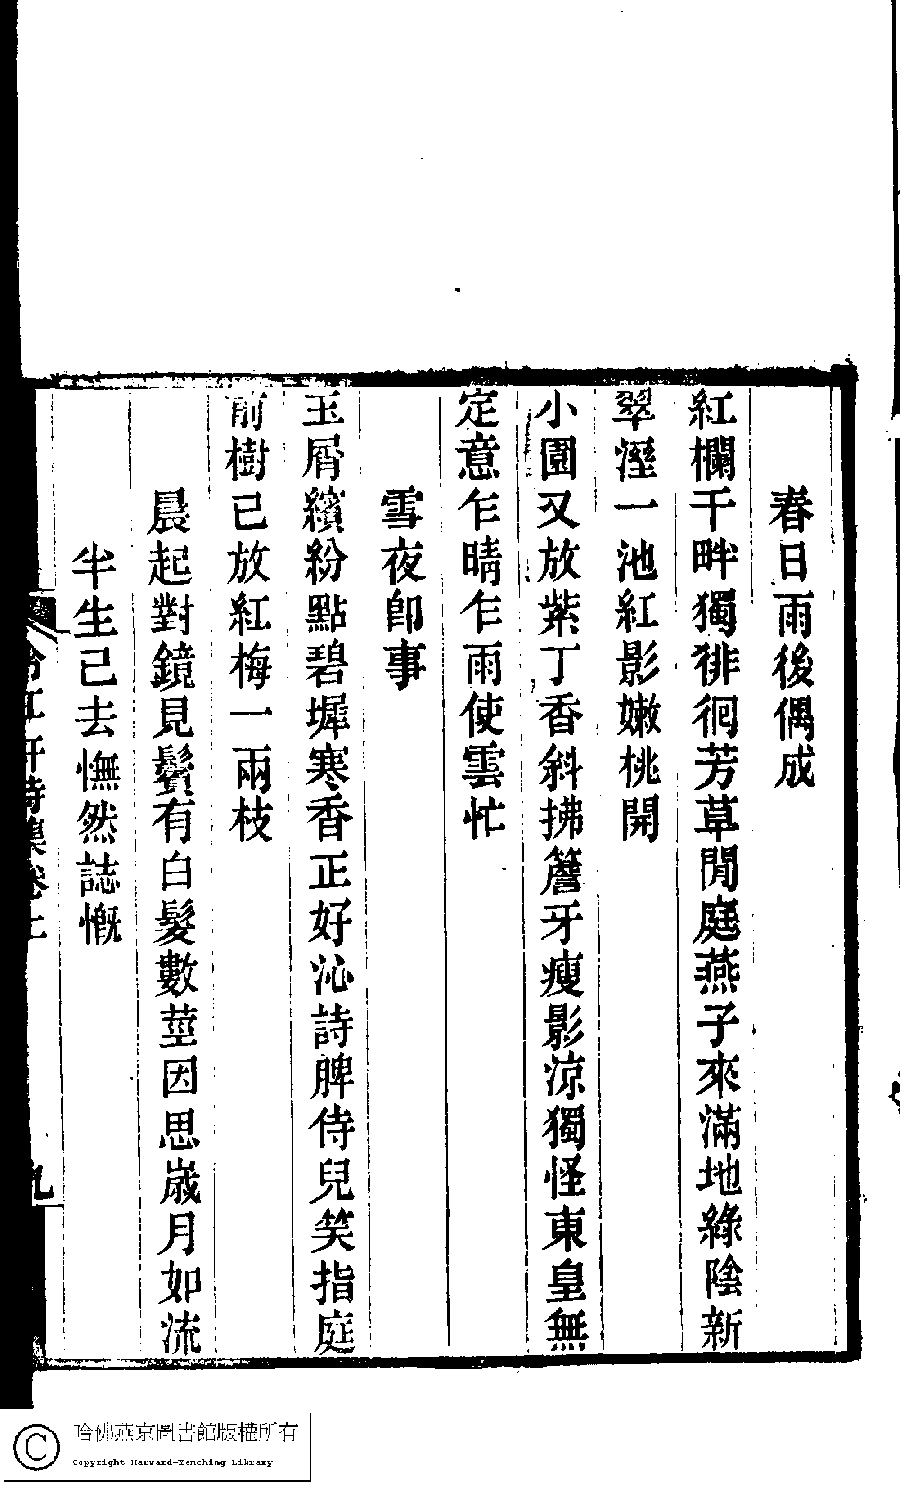 春日雨後偶成
紅欄干畔獨徘徊芳草閒庭燕子來滿地綠陰新
翠溼一池紅影嫩桃開
小園又放紫丁香斜拂簷牙瘦影涼獨怪東皇無
定意乍晴乍雨使雲忙
雪夜卽事
玉屑繽紛點碧墀寒香正好沁詩脾侍兒笑指庭
前樹已放紅梅一兩枝
晨起對鏡見鬢有白髮數莖因思歲月如流
半生已去憮然誌慨
冷紅軒詩集卷上
九
哈佛燕京圖書館版權所有
Copyright Harvard-Yenching Library